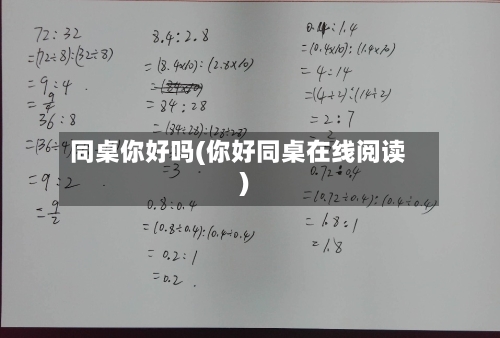 72:32
=(72÷8):(32÷8)
=9:4
=9/4
36:8
=9:2
=9/2
8.4:2.8
=(8.4×10):(2.8×10)
=84:28
=(84÷28):(28÷28)
=3
0.8:0.4
=(0.8÷0.4):(0.4÷0.4)
=0.2:1
=0.2
:1.4
=(0.4×10):(1.4×10)
=4:14
=(4÷2):(14÷2)
=2:7
0.72:0.4
=(0.72÷0.4):(0.4÷0.4)
=1.8:1
=1.8
同桌你好吗(你好同桌在线阅读
)